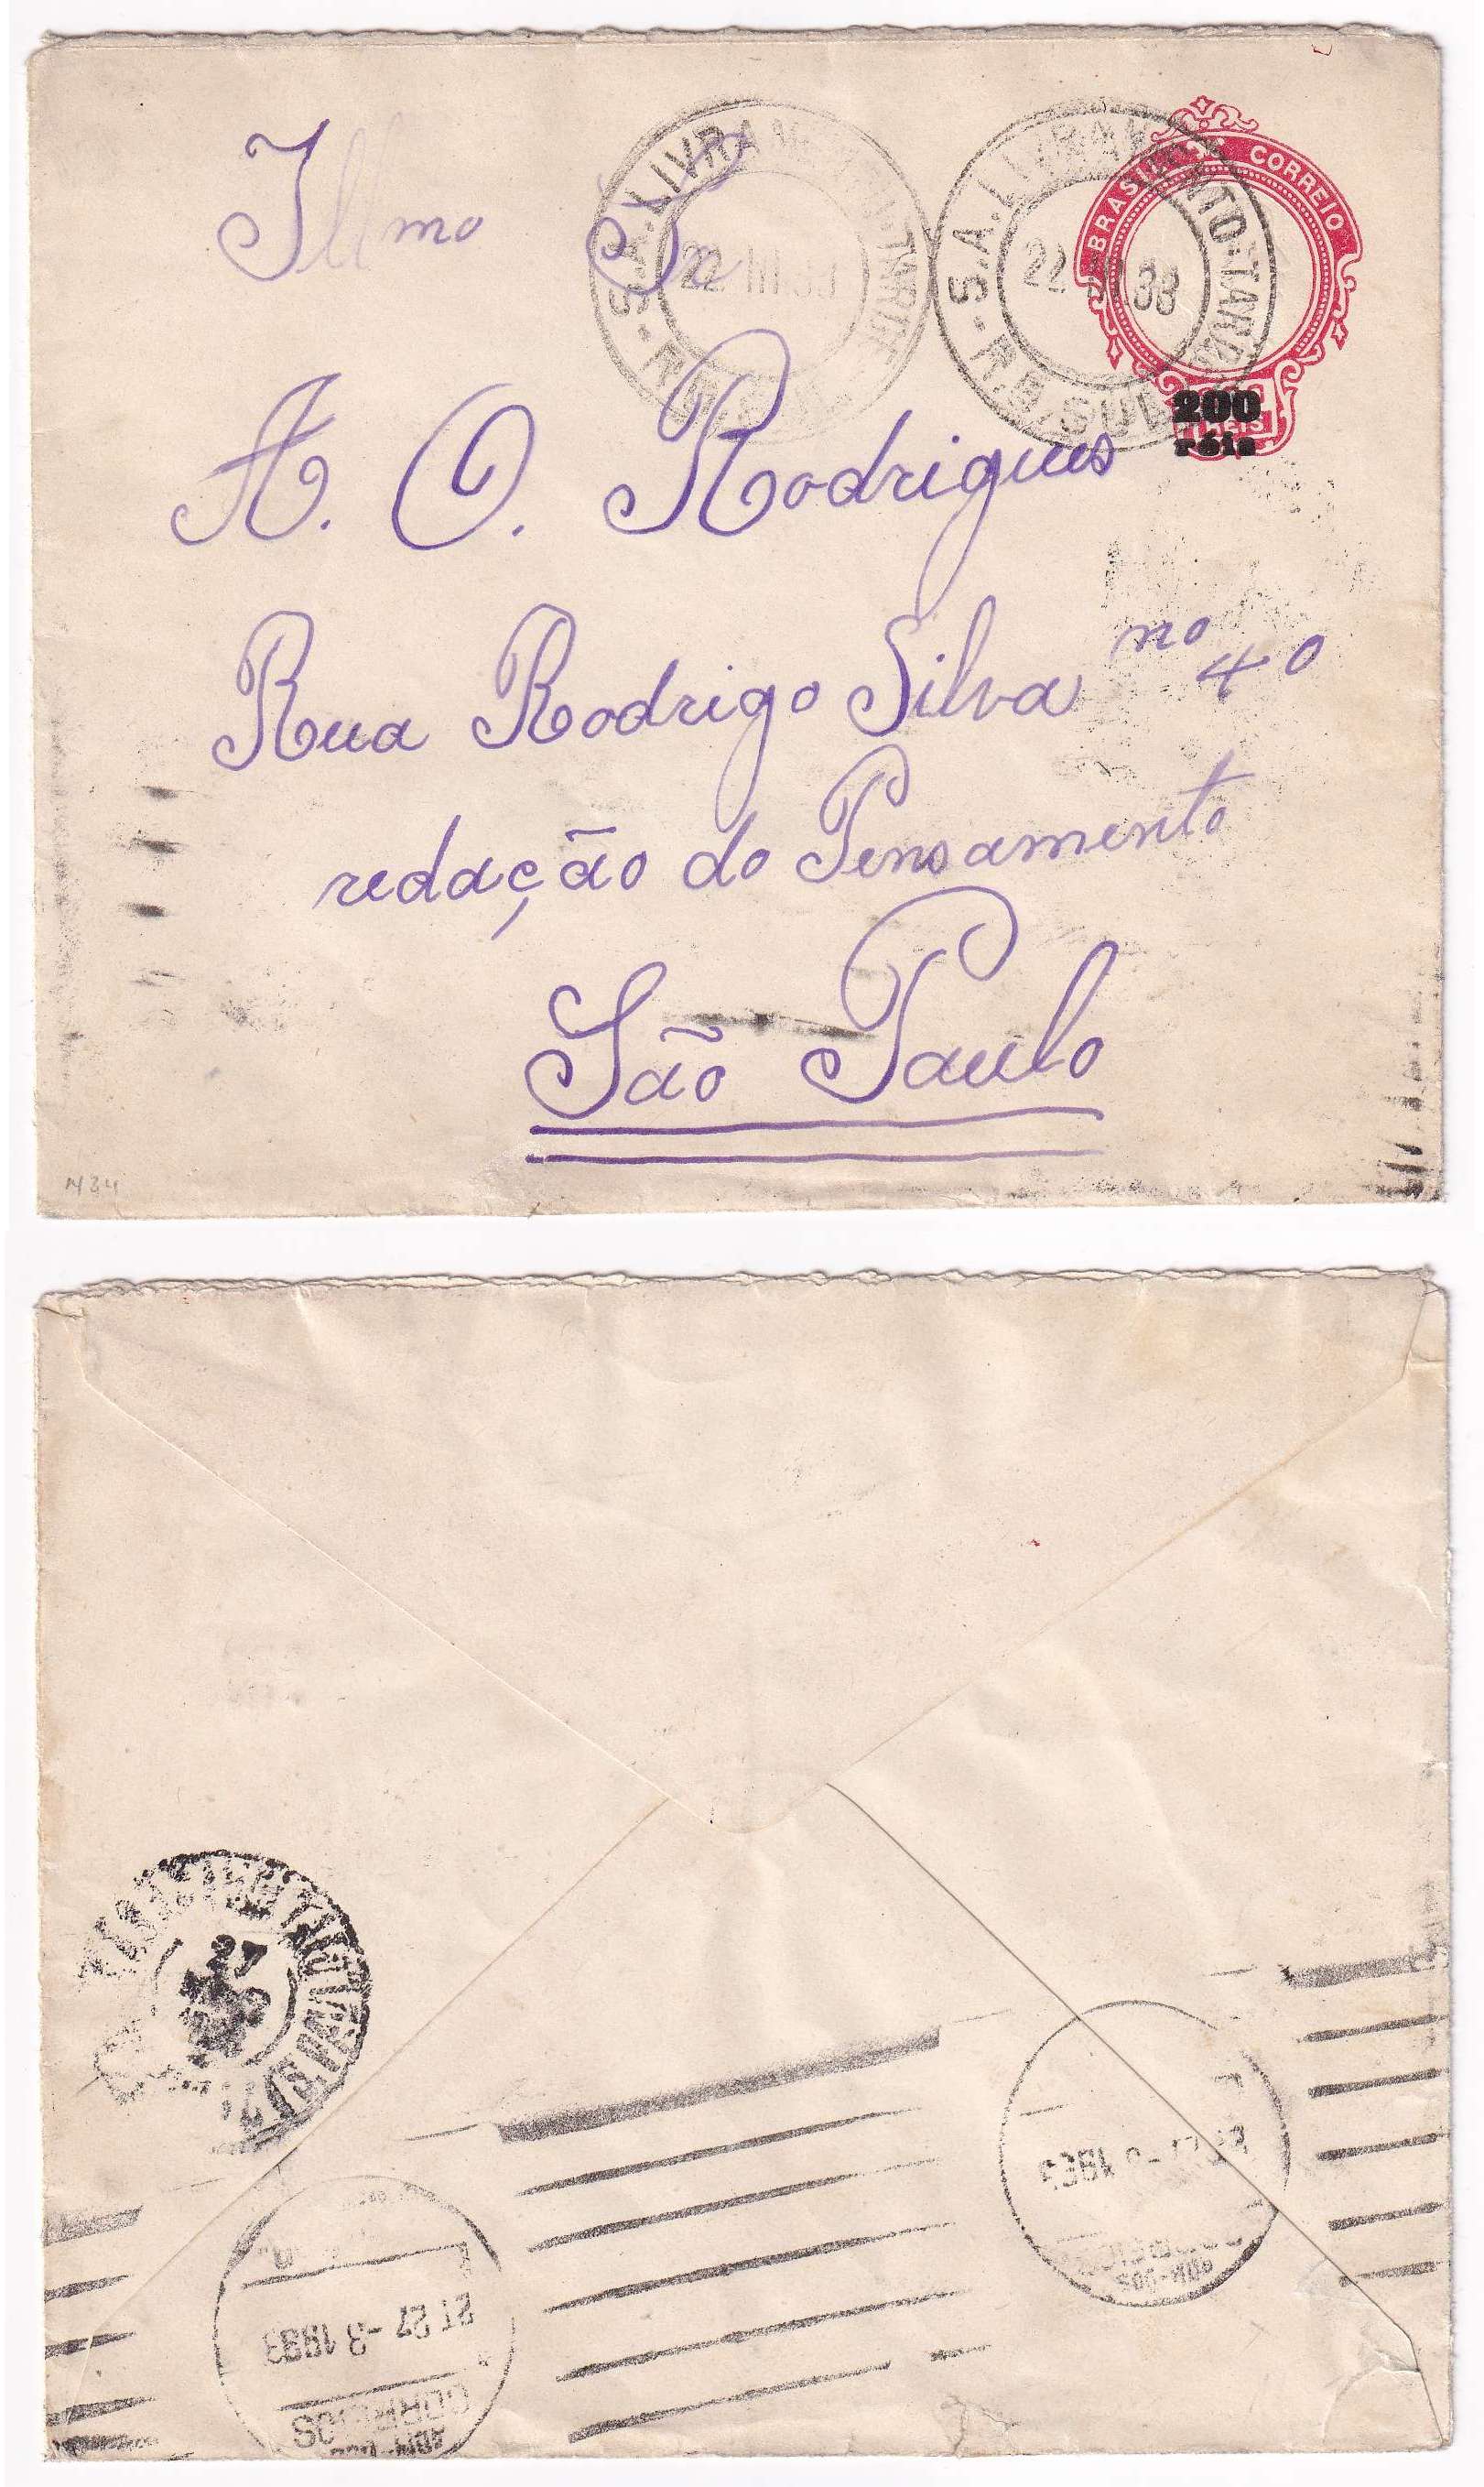 BRASIL CORREIO
200
réis
S.A. LIVRAMENTO-TARDE
R.G. SUL
22 III 33
S.A. LIVRAMENTO-TARDE
R.G. SUL
22 33
Illmo Snr
A. O. Rodrigues
Rua Rodrigo Silva no 40
redação do Pensamento
São Paulo
N34
27
21 27 -3 1933
CORREIOS
-3 1933
CORREIOS
ADM-DOS